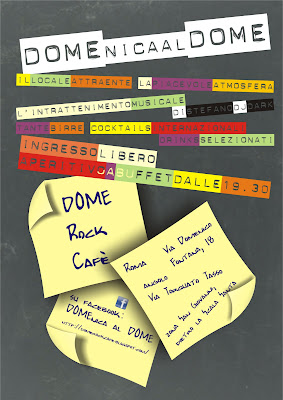 DOMENICAALDOME
ILLOCALEATTRAENTE LAPIACEVOLEATMOSFERA
L'INTRATTENIMENTOMUSICALE DISTEFANODJDARK
TANTEBIRRE COCKTAILSINTERNAZIONALI
DRINKSSELEZIONATI
INGRESSOLIBERO
APERITIVOABUFFETDALLE19.30
DOME
ROCK
CAFÈ
ROMA VIA DOMENICO
FONTANA, 18
ANGOLO
VIA TORQUATO TASSO
ZONA SAN GIOVANNI,
DIETRO LA SCALA SANTA
SU FACEBOOK:
DOMENICA AL DOME